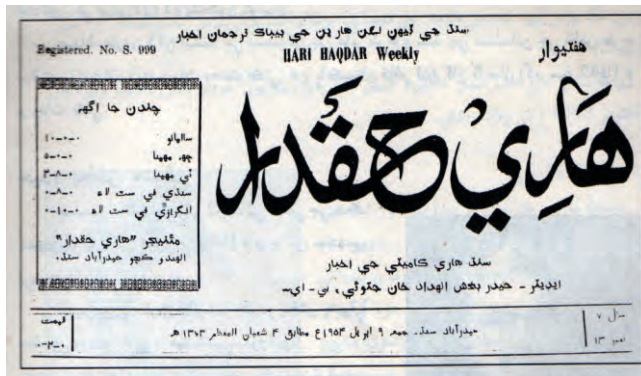 سنڌ جي ٽيهن لکن هارين جي بيباڪ ترجمان اخبار
Registered. No. S. 999
HARI HAQDAR Weekly
هفتيوار
هاري حقدار
چندن جا اگهہ
ساليانو ۰-۰-۱۰
ڇهہ مهينا ۰-۰-۵
ٽي مهينا ۰-۸-۳
سنڌي في سٽ لاءِ ۰-۸-۰
انگريزي في سٽ لاءِ ۰-۱۰-۰
مئنيجر "هاري حقدار"
الهندو ڪچو حيدرآباد سنڌ.
سنڌ هاري ڪاميٽي جي اخبار
ايڊيٽر - حيدر بخش الهداد خان جتوئي، بي - اي-
سال ۷
نمبر ۱۳
حيدرآباد سنڌ. جمعہ ۹ اپريل ۱۹۵۴ع مطابق ۴ شعبان المعظم ۱۳۷۳ھ
قيمت
۰-۲-۰